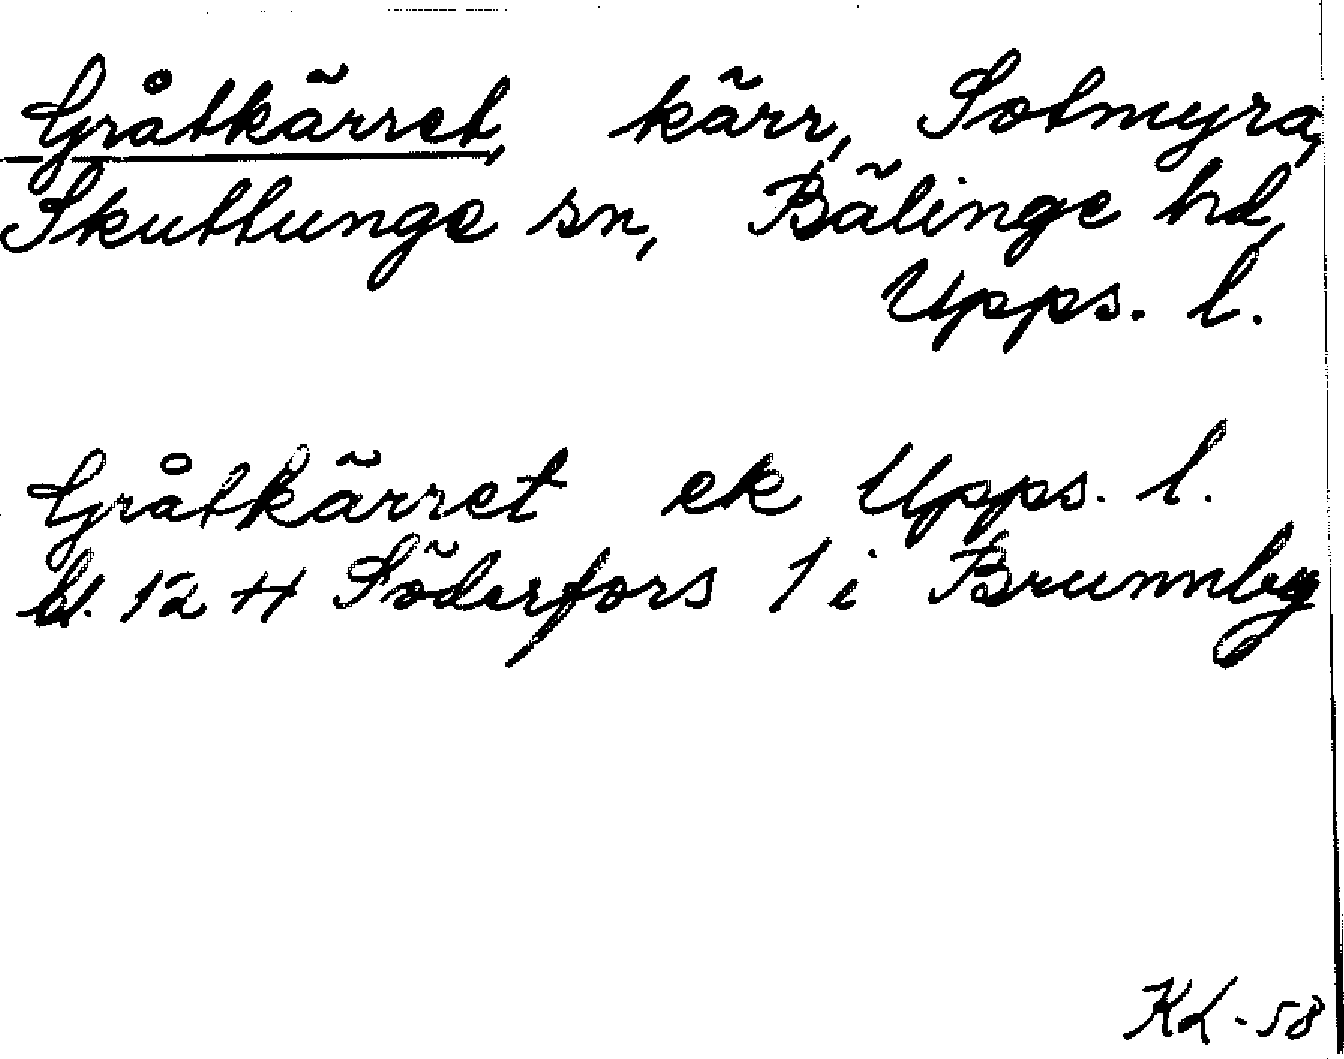 Gråtkärret, kärr, Sotmyra,
Skuttunge sn, Bälinge hd,
Upps. l.
Gråtkärret ek Upps. l.
bl. 12 H Söderfors 1 i Brunnby
KL-58